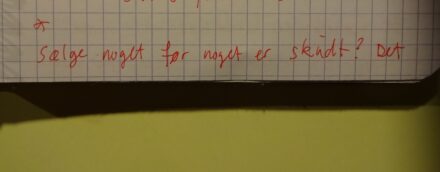 *
Sælge noget før noget er skudt? Det